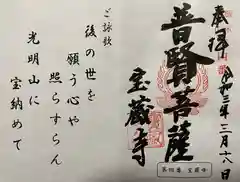 奉拝
令和三年三月十八日
普賢菩薩
宝蔵寺
ご詠歌
後の世を
願う心や
照らすらん
光明山に
宝納めて